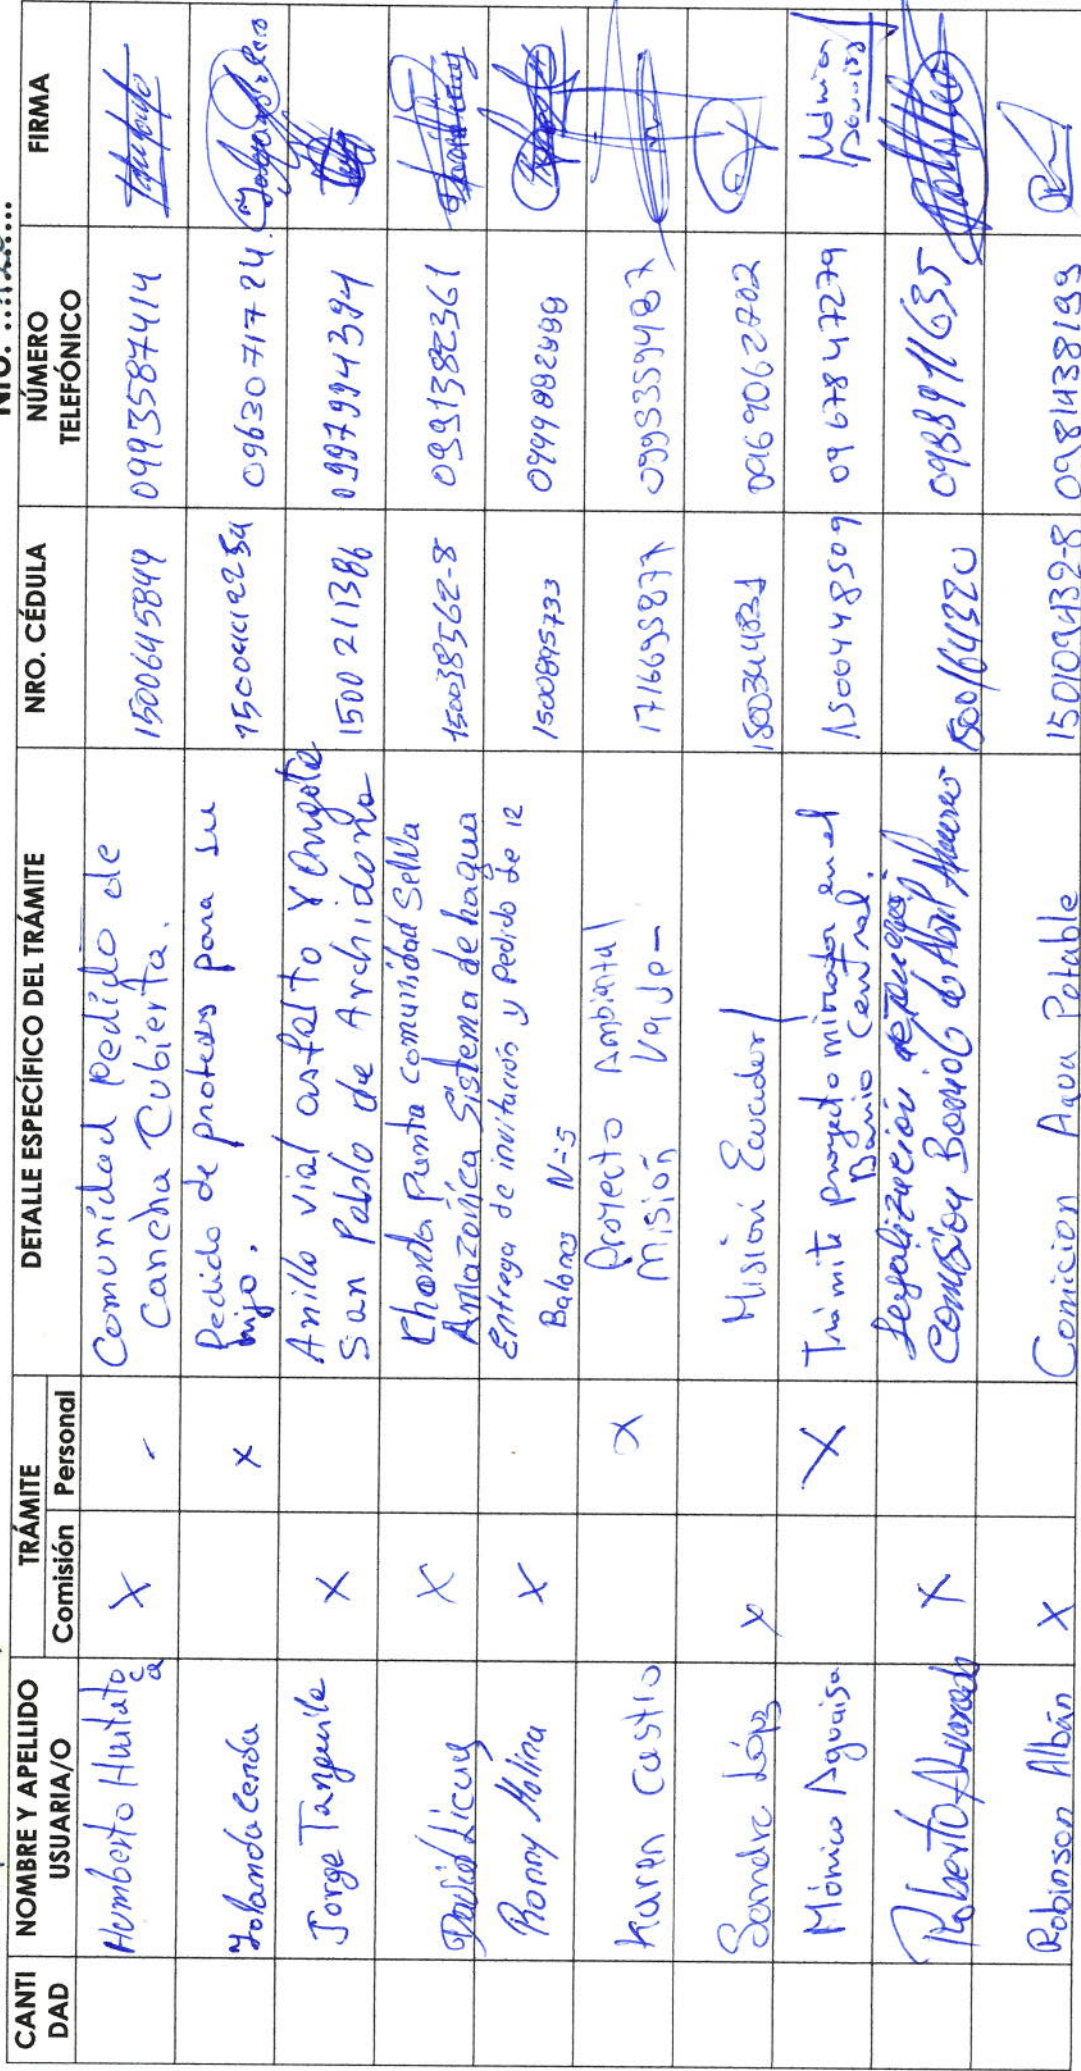 NRO.
CANTI DAD
NOMBRE Y APELLIDO USUARIA/O
TRÁMITE
Comisión
Personal
DETALLE ESPECÍFICO DEL TRÁMITE
NRO. CÉDULA
NÚMERO TELEFÓNICO
FIRMA
Humberto Huatatoca
X
Comunidad Pedido de
Cancha Cubierta.
1500645849
0993587414
Yolanda Cerda
x
Pedido de protesis para su
hijo.
0963071724
Jorge Tanguila
X
Anillo vial asfalto Y
San Pablo de Archidona
1500211386
0997994394
David Licuy
X
Chonta Punta comunidad Selva
Amazonica Sistema de hagua
150038562-8
0991382361
Romy Molina
X
Entrega de invitación y Pedido de 12
Balones N=5
1500895733
Karen Castro
X
Proyecto Ambiental
Misión
1716695877
Sandra López
x
Misión Ecuador
0969062702
Mónica Aguaisa
X
Trámite proyecto mirador en el
Barrio Central.
1500448509
0967847279
Mónica
Roberto Alvarado
X
Legalización
Comision Barrio 6 de Abril
1500164320
0988911635
Robinson Albán
X
Comicion Agua Potable
150109432-8
0981438199